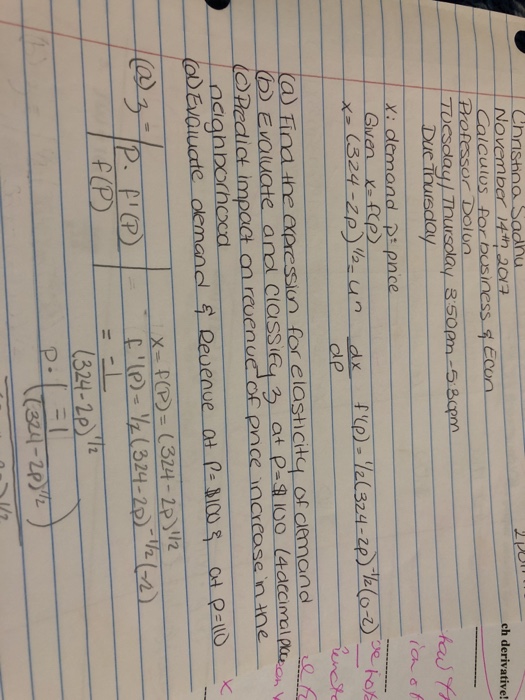 Christina Sadhu
November 14th 2017
Calculus for business & Econ
Professor Dolan
Tuesday/Thursday 3:50pm-5:30pm
Due Thursday
ch derivative!
x: demand p: price
Given x=f(p)
x=(324-2p)^1/2 = u^n dx/dp f'(p)=1/2(324-2p)^-1/2(0-2)
(a) Find the expression for elasticity of demand
(b) Evaluate and classify 3 at p=$100 (4 decimal
(c) Predict impact on revenue of price increase in the
neighborhood
(d) Evaluate demand & Revenue at p=$100 & at p=110
(a) 3 = |P·f'(P)/f(P)| = x=f(P)=(324-2p)^1/2
f'(P)=1/2(324-2p)^-1/2(-2)
= -1/(324-2p)^1/2
P·(-1/(324-2p)^1/2)